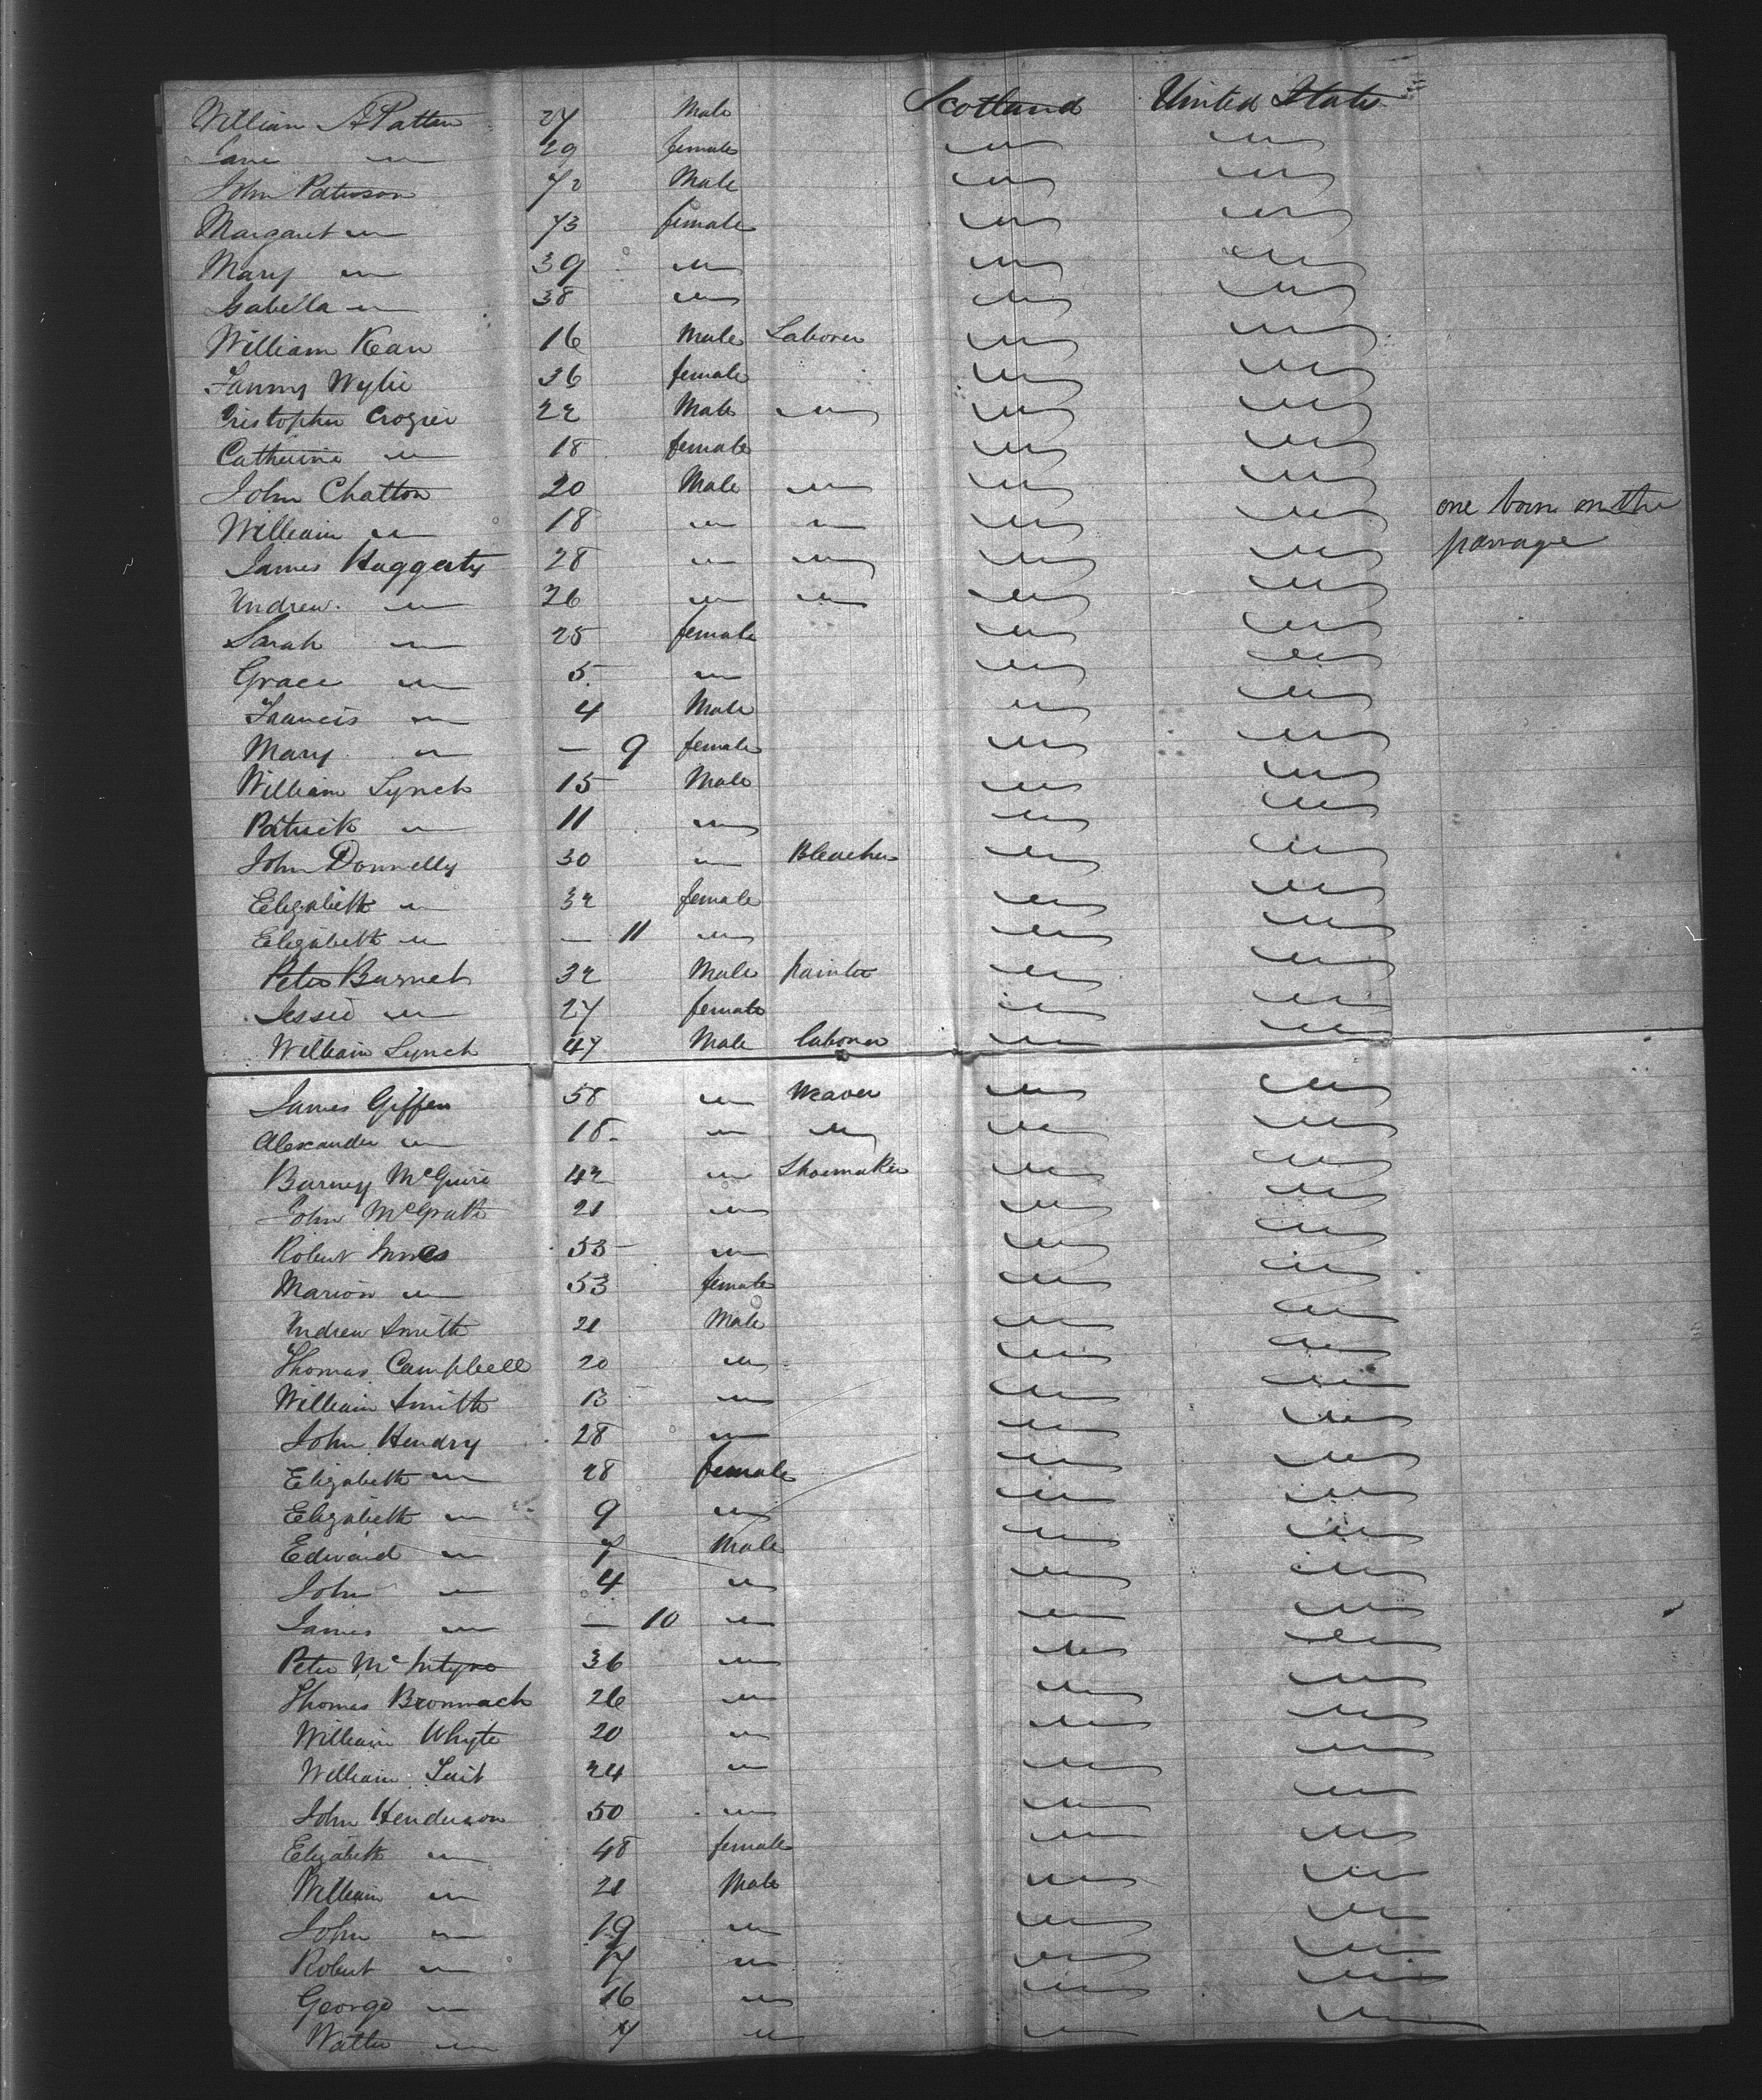 William A Patten 27 Male Scotland United States
Jane " 29 female " "
John Paterson 72 Male " "
Margaret " 73 female " "
Mary " 39 " " "
Isabella " 38 " " "
William Kean 16 Male Laborer " "
Fanny Wylie 36 female " "
Cristopher Crozier 22 Male " " "
Catherine " 18 female " "
John Chatton 20 Male " " "
William " 18 " " " " one born on the
James Haggerty 28 " " " " passage
Andrew " 26 " " " "
Sarah " 25 female " "
Grace " 5 " " "
Francis " 4 Male " "
Mary " — 9 female " "
William Lynch 15 Male " "
Patrick " 11 " " "
John Donnelly 30 " Bleacher " "
Elizabeth " 32 female " "
Elizabeth " — 11 " " "
Peter Burnet 32 Male painter " "
Jessie " 27 female " "
William Lynch 47 Male laborer " "
James Giffen 58 " Weaver " "
Alexander " 18 " " " "
Barney McGuire 42 " Shoemaker " "
John McGrath 21 " " "
Robert Innes 55 " " "
Marion " 53 female " "
Andrew Smith 21 Male " "
Thomas Campbell 20 " " "
William Smith 13 " " "
John Hendry 28 " " "
Elizabeth " 28 female " "
Elizabeth " 9 " " "
Edward " 7 Male " "
John " 4 " " "
James " — 10 " " "
Peter McIntyre 36 " " "
Thomas Bronnach 26 " " "
William Whyte 20 " " "
William Tait 24 " " "
John Henderson 50 " " "
Elizabeth " 48 female " "
William " 21 Male " "
John " 19 " " "
Robert " 17 " " "
George " 16 " " "
Walter " 7 " " "